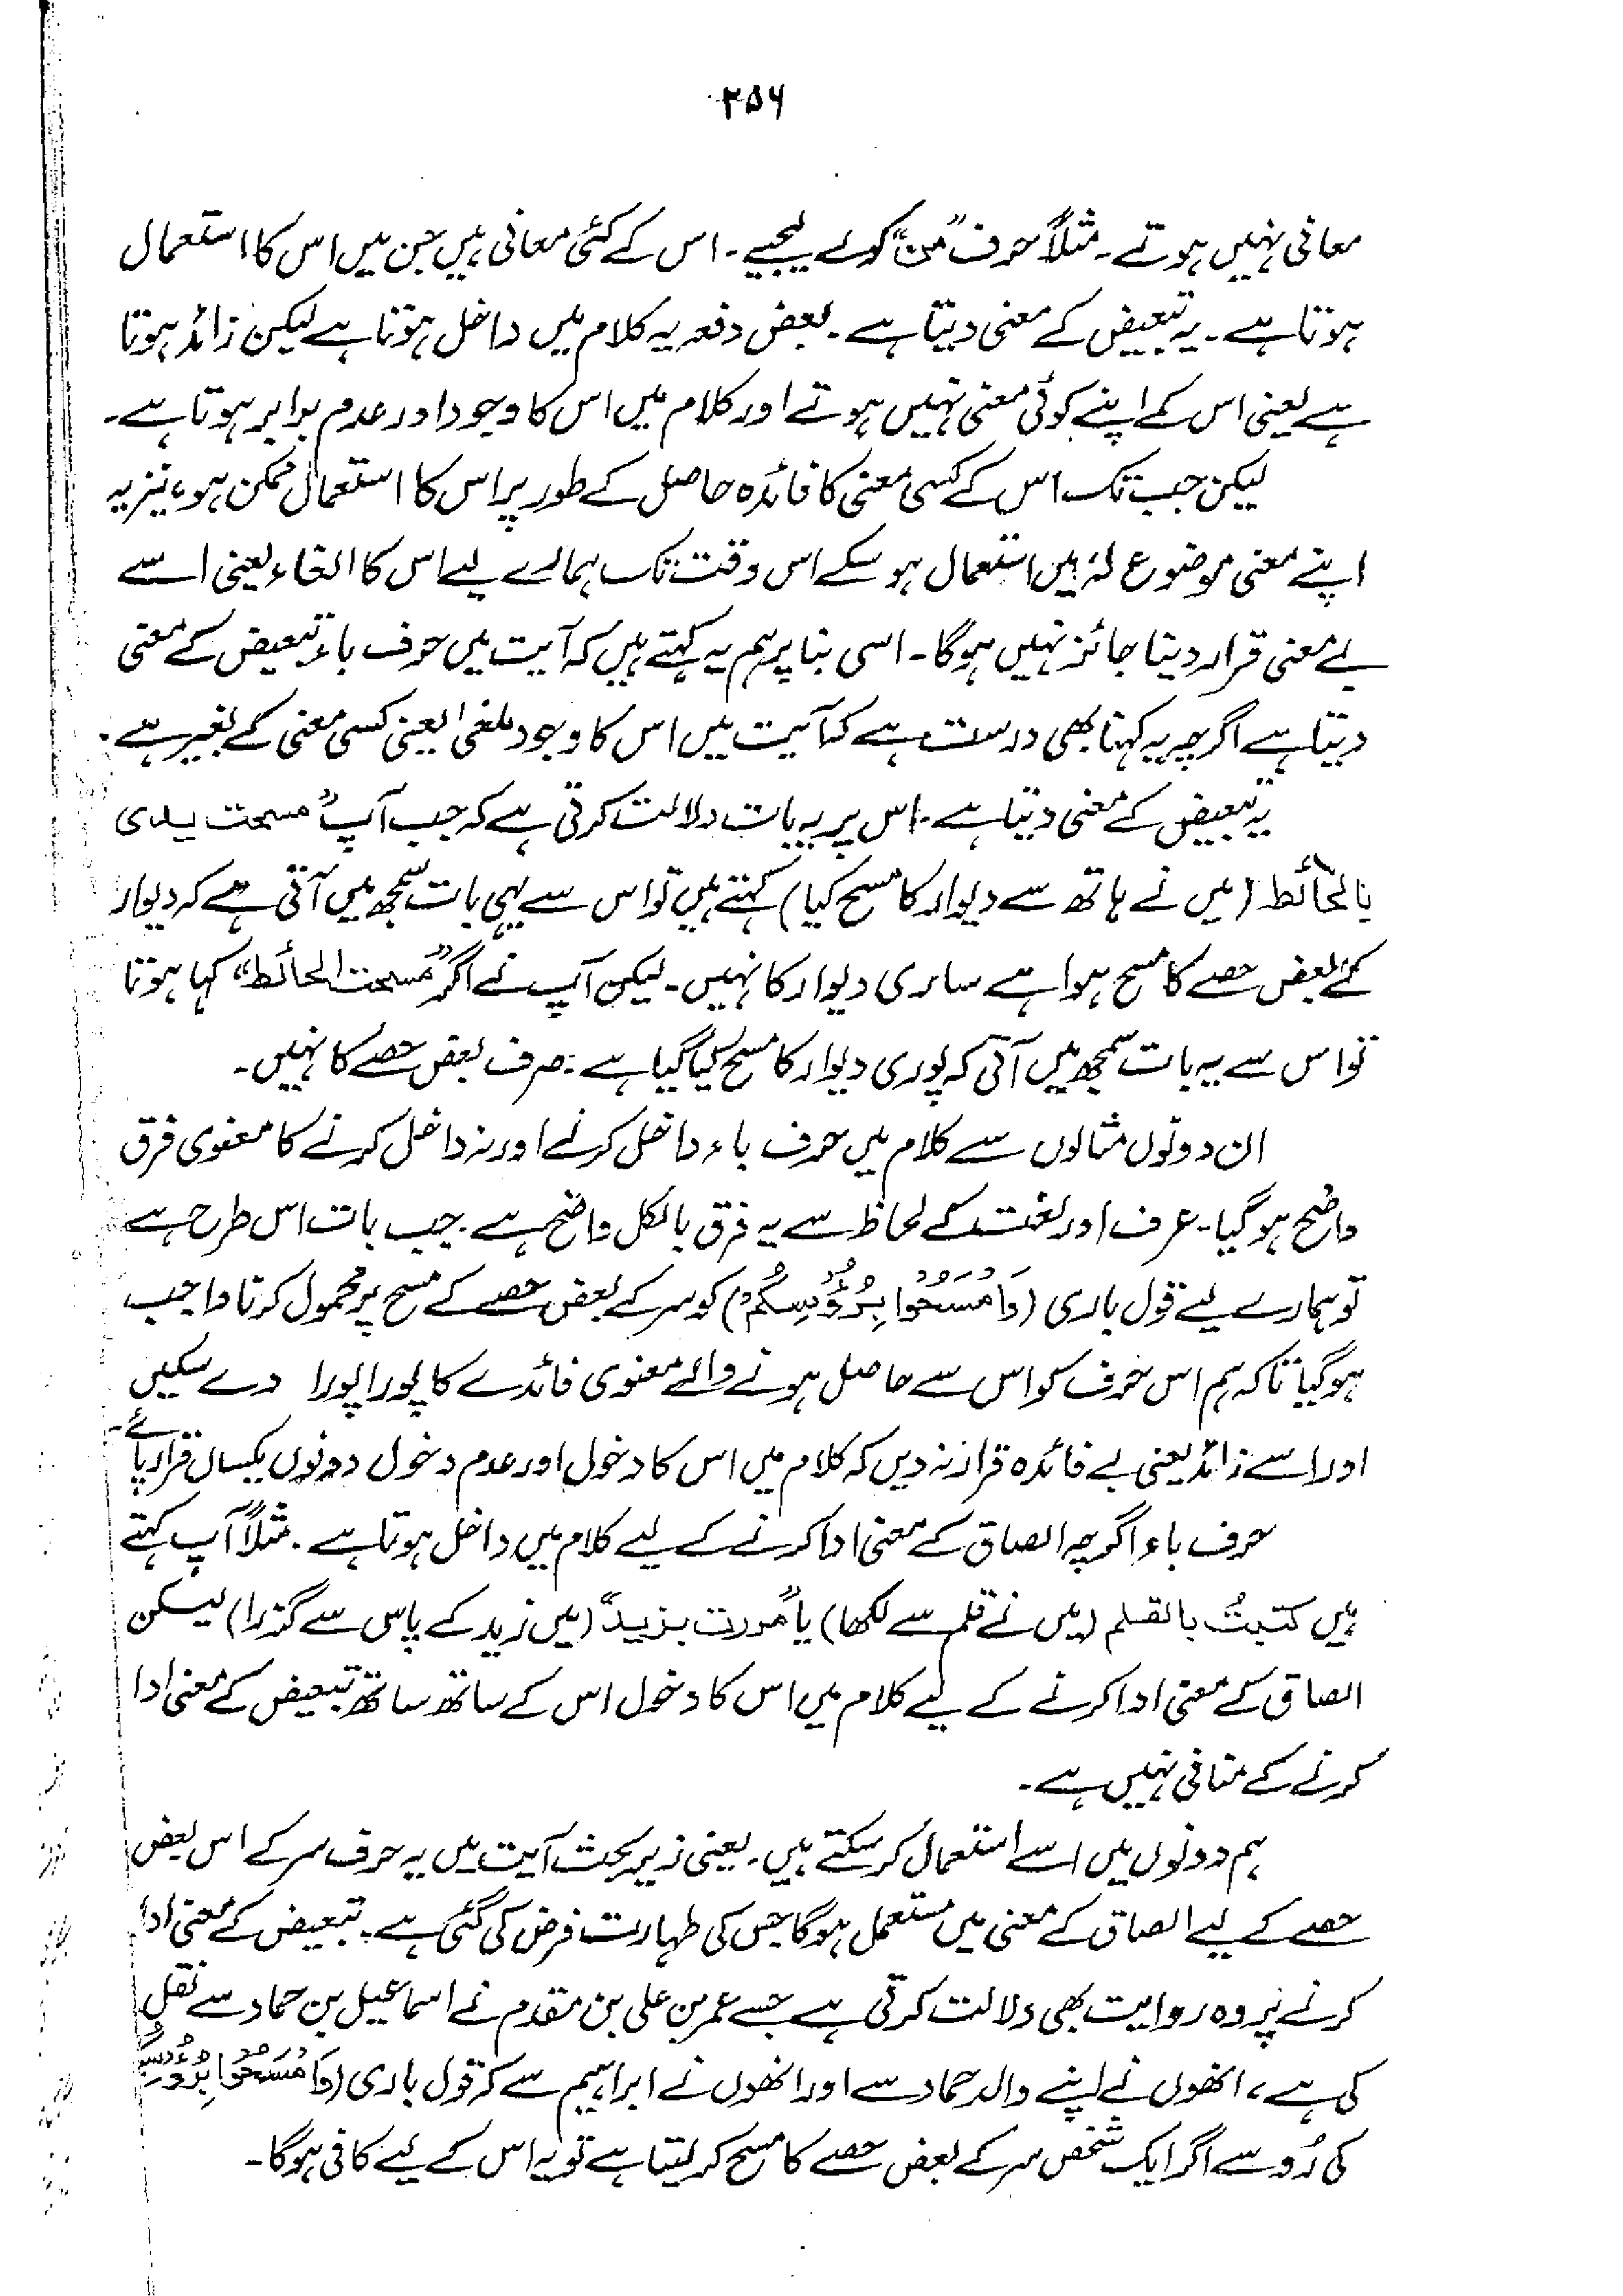 ۳۵۶
معانی نہیں ہوتے۔ مثلاً حرف "من" کو لے لیجیے۔ اس کے کئی معانی ہیں جن میں اس کا استعمال
ہوتا ہے۔ یہ تبعیض کے معنی دیتا ہے۔ بعض دفعہ یہ کلام میں داخل ہوتا ہے لیکن زائد ہوتا
ہے یعنی اس کے اپنے کوئی معنی نہیں ہوتے اور کلام میں اس کا وجود اور عدم برابر ہوتا ہے۔
لیکن جب تک اس کے کسی معنی کا فائدہ حاصل کے طور پر اس کا استعمال ممکن ہو، نیز یہ
اپنے معنی موضوع لہٗ میں استعمال ہو سکے اس وقت تک ہمارے لیے اس کا الغاء یعنی اسے
بے معنی قرار دینا جائز نہیں ہوگا۔ اسی بنا پر ہم یہ کہتے ہیں کہ آیت میں حرف باء تبعیض کے معنی
دیتا ہے اگرچہ یہ کہنا بھی درست ہے کہ آیت میں اس کا وجود ملغیٰ یعنی کسی معنی کے بغیر ہے۔
یہ تبعیض کے معنی دیتا ہے۔ اس پر یہ بات دلالت کرتی ہے کہ جب آپ "مسحت یدی
بالحائط (میں نے ہاتھ سے دیوار کا مسح کیا) کہتے ہیں تو اس سے یہی بات سمجھ میں آتی ہے کہ دیوار
کے بعض حصے کا مسح ہوا ہے ساری دیوار کا نہیں۔ لیکن آپ نے اگر "مسحت الحائط" کہا ہوتا
تو اس سے یہ بات سمجھ میں آتی کہ پوری دیوار کا مسح کیا گیا ہے۔ صرف بعض حصے کا نہیں۔
ان دونوں مثالوں سے کلام میں حرف باء داخل کرنے اور نہ داخل کرنے کا معنوی فرق
واضح ہو گیا۔ عرف اور لغت کے لحاظ سے یہ فرق بالکل واضح ہے۔ جب بات اس طرح ہے
تو ہمارے لیے قول باری (وَامْسَحُوْا بِرُؤُسِکُمْ) کو سر کے بعض حصے کے مسح پر محمول کرنا واجب
ہو گیا تاکہ ہم اس حرف کو اس سے حاصل ہونے والے معنوی فائدے کا پورا پورا دے سکیں
اور اسے زائد یعنی بے فائدہ قرار نہ دیں کہ کلام میں اس کا دخول اور عدم دخول دونوں یکساں قرار پائے۔
حرف باء اگرچہ الصاق کے معنی ادا کرنے کے لیے کلام میں داخل ہوتا ہے۔ مثلاً آپ کہتے
ہیں کتبتُ بالقلم (میں نے قلم سے لکھا) یا "مررت بزید" (میں زید کے پاس سے گزرا) لیکن
الصاق کے معنی ادا کرنے کے لیے کلام میں اس کا دخول اس کے ساتھ ساتھ تبعیض کے معنی ادا
کرنے کے منافی نہیں ہے۔
ہم دونوں میں اسے استعمال کر سکتے ہیں۔ یعنی زیر بحث آیت میں یہ حرف سر کے اس بعض
حصے کے لیے الصاق کے معنی میں مستعمل ہوگا جس کی طہارت فرض کی گئی ہے۔ تبعیض کے معنی ادا
کرنے پر وہ روایت بھی دلالت کرتی ہے جسے عمر بن علی بن مقدم نے اسماعیل بن حماد سے نقل
کی ہے، انھوں نے اپنے والد حماد سے اور انھوں نے ابراہیم سے کہ قول باری (وَامْسَحُوْا بِرُؤُسِکُمْ
کی رُو سے اگر ایک شخص سر کے بعض حصے کا مسح کر لیتا ہے تو یہ اس کے لیے کافی ہوگا۔